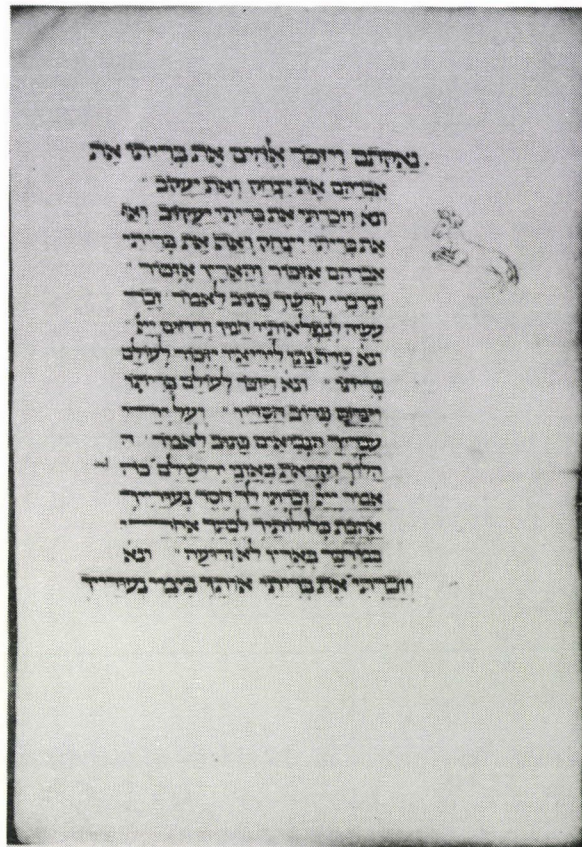 נאקתם ויזכר אלהים את בריתו את
אברהם את יצחק ואת יעקב
ונא וזכרתי את בריתי יעקוב ואף
את בריתי יצחק ואף את בריתי
אברהם אזכור והארץ אזכור
ובדברי קדשך כתוב לאמר זכר
עשה לנפלאותיו חנון ורחום ייי
ונא טרף נתן ליריאיו יזכור לעולם
בריתו ונא ויזכר להם בריתו
וינחם כרוב חסדיו ועל יד
עבדיך הנביאים כתוב לאמר ה
הלוך וקראת באזני ירושלם כה
אמר ייי זכרתי לך חסד נעוריך
אהבת כלולותיך לכתך אחרי
במדבר בארץ לא זרועה ונא
וזכרתי את בריתי אותך בימי נעוריך